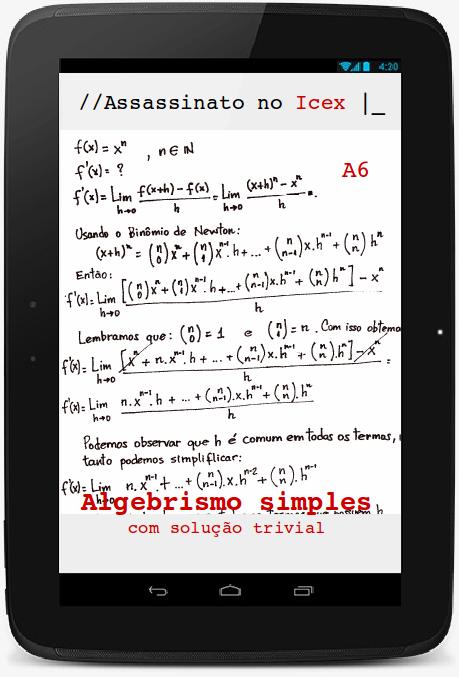 4:20
//Assassinato no Icex |_
f(x) = xⁿ , n ∈ ℕ
f'(x) = ?
A6
f'(x) = Lim h→0 f(x+h) - f(x) / h = Lim h→0 (x+h)ⁿ - xⁿ / h =
Usando o Binômio de Newton:
(x+h)ⁿ = (n 0) xⁿ + (n 1) xⁿ⁻¹.h + ... + (n n-1) x.hⁿ⁻¹ + (n n) hⁿ
Então:
f'(x) = Lim h→0 [(n 0) xⁿ + (n 1) xⁿ⁻¹.h + ... + (n n-1) x.hⁿ⁻¹ + (n n) hⁿ] - xⁿ / h
Lembramos que: (n 0) = 1 e (n 1) = n . Com isso obtemo
f'(x) = Lim h→0 [xⁿ + n.xⁿ⁻¹.h + ... + (n n-1) x.hⁿ⁻¹ + (n n).hⁿ] - xⁿ / h =
f'(x) = Lim h→0 n.xⁿ⁻¹.h + ... + (n n-1).x.hⁿ⁻¹ + (n n).hⁿ / h
Podemos observar que h é comum em todos os termos,
tanto podemos simplificar:
f'(x) = Lim h→0 n.xⁿ⁻¹ + ... + (n n-1).x.hⁿ⁻² + (n n).hⁿ⁻¹
Algebrismo simples
com solução trivial